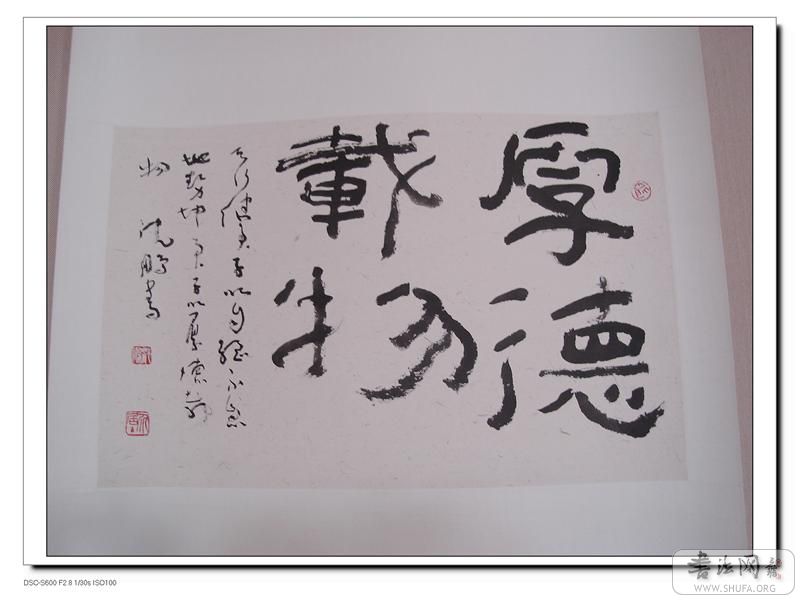 厚德
載物
天行健君子以自强不息
地势坤君子以厚德载
物 沈鹏書
DSC-S600 F2.8 1/30s ISO100
書法网
WWW.SHUFA.ORG